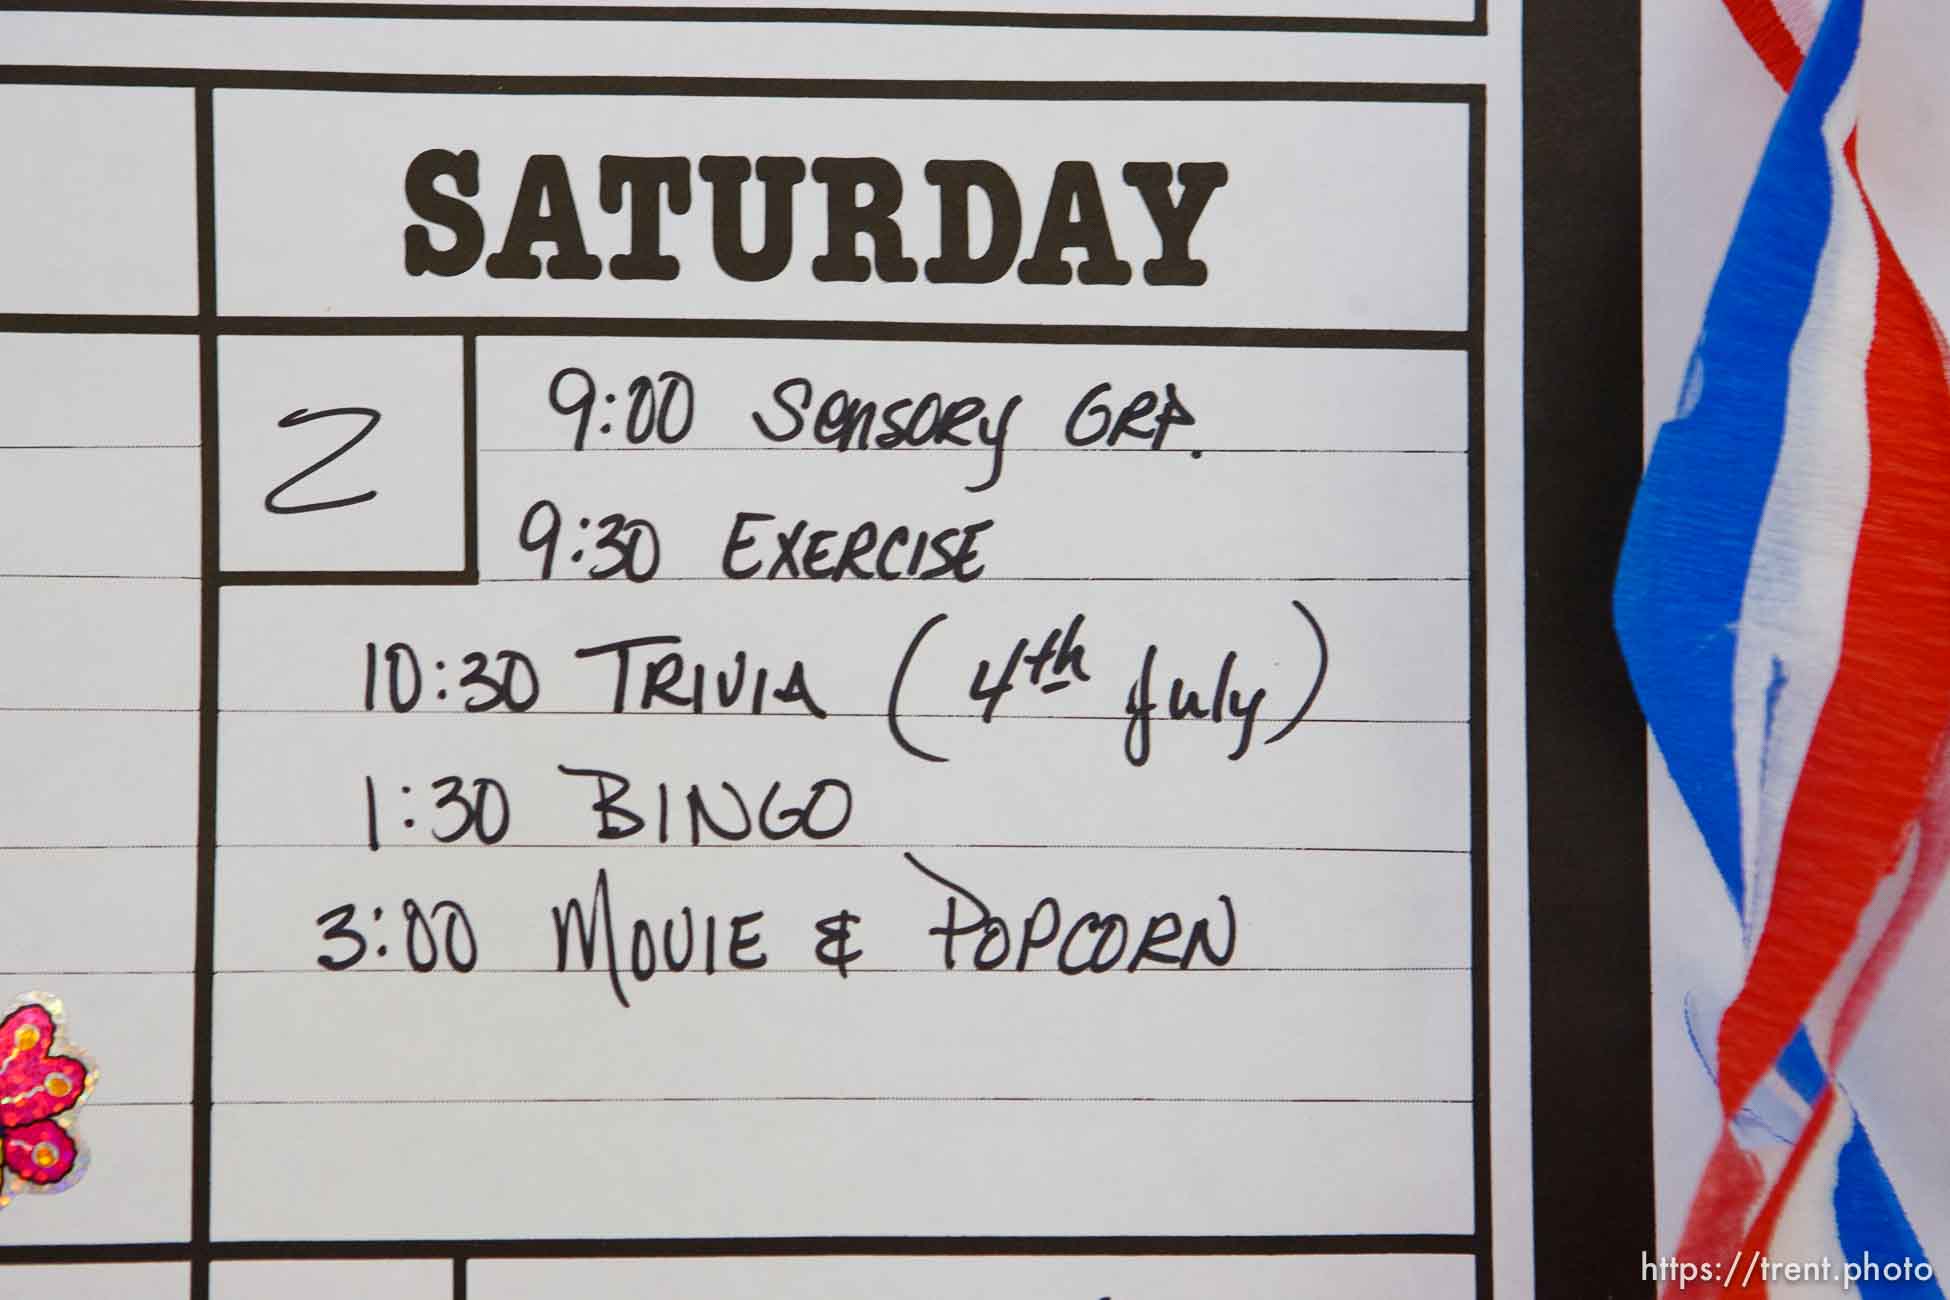 SATURDAY
2
9:00 Sensory GRP.
9:30 EXERCISE
10:30 TRIVIA (4th July)
1:30 BINGO
3:00 MOVIE & POPCORN
https://trent.photo